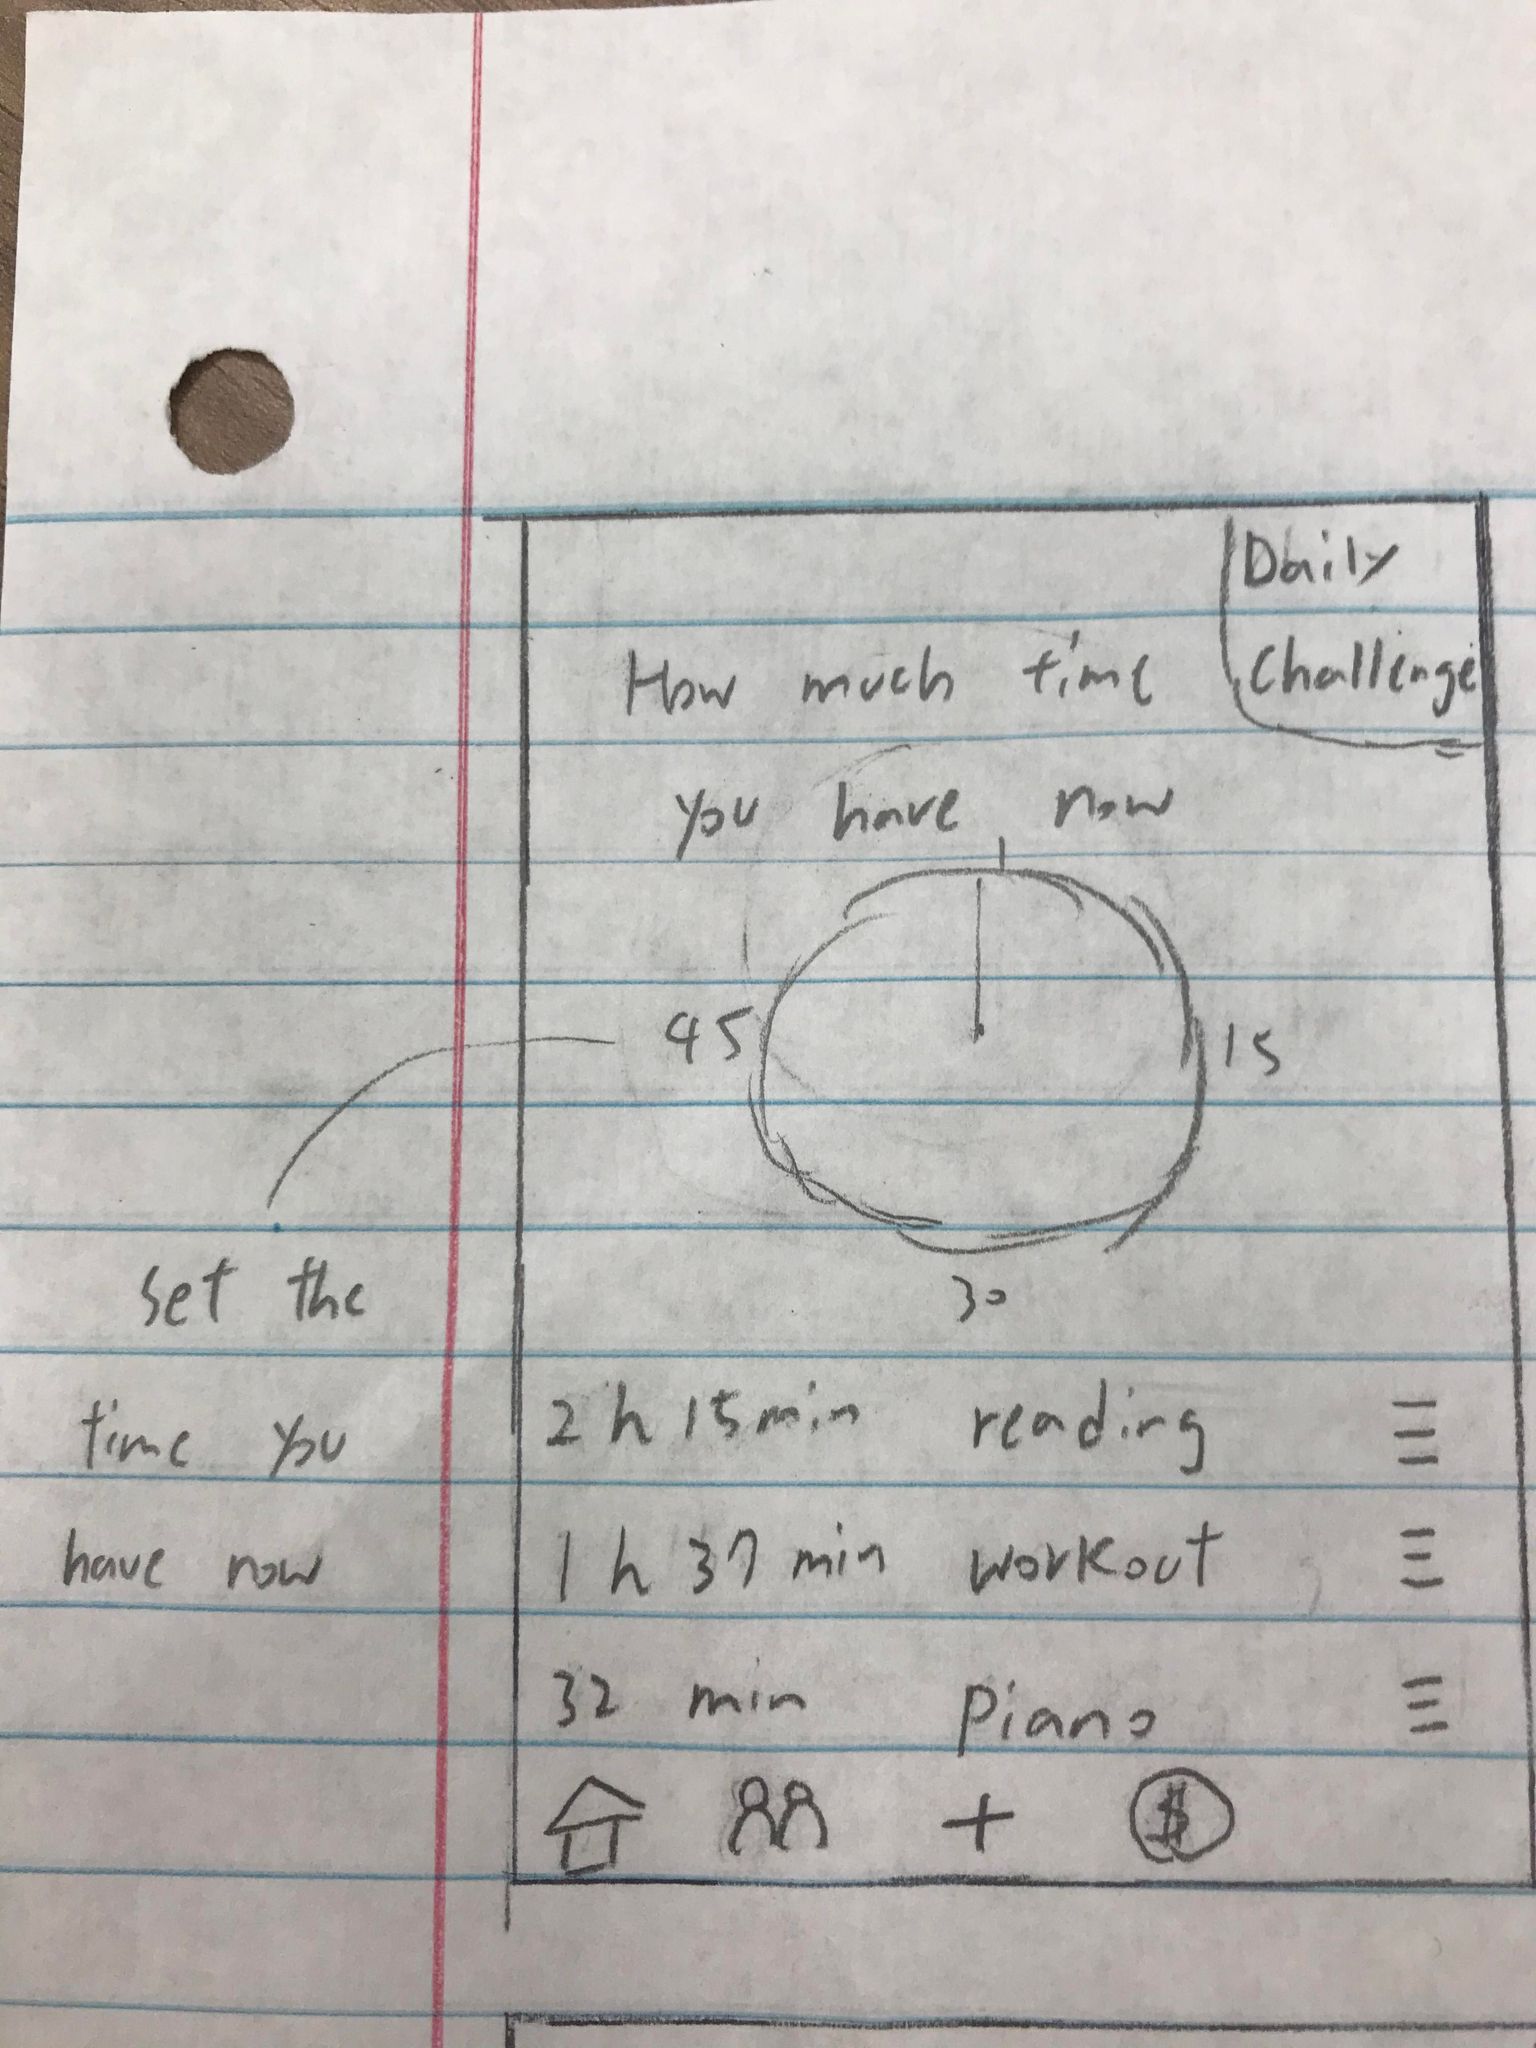 Daily
Challenge
How much time
you have now
45
15
30
set the
time you
have now
2 h 15 min reading
1 h 37 min workout
32 min piano
+ $